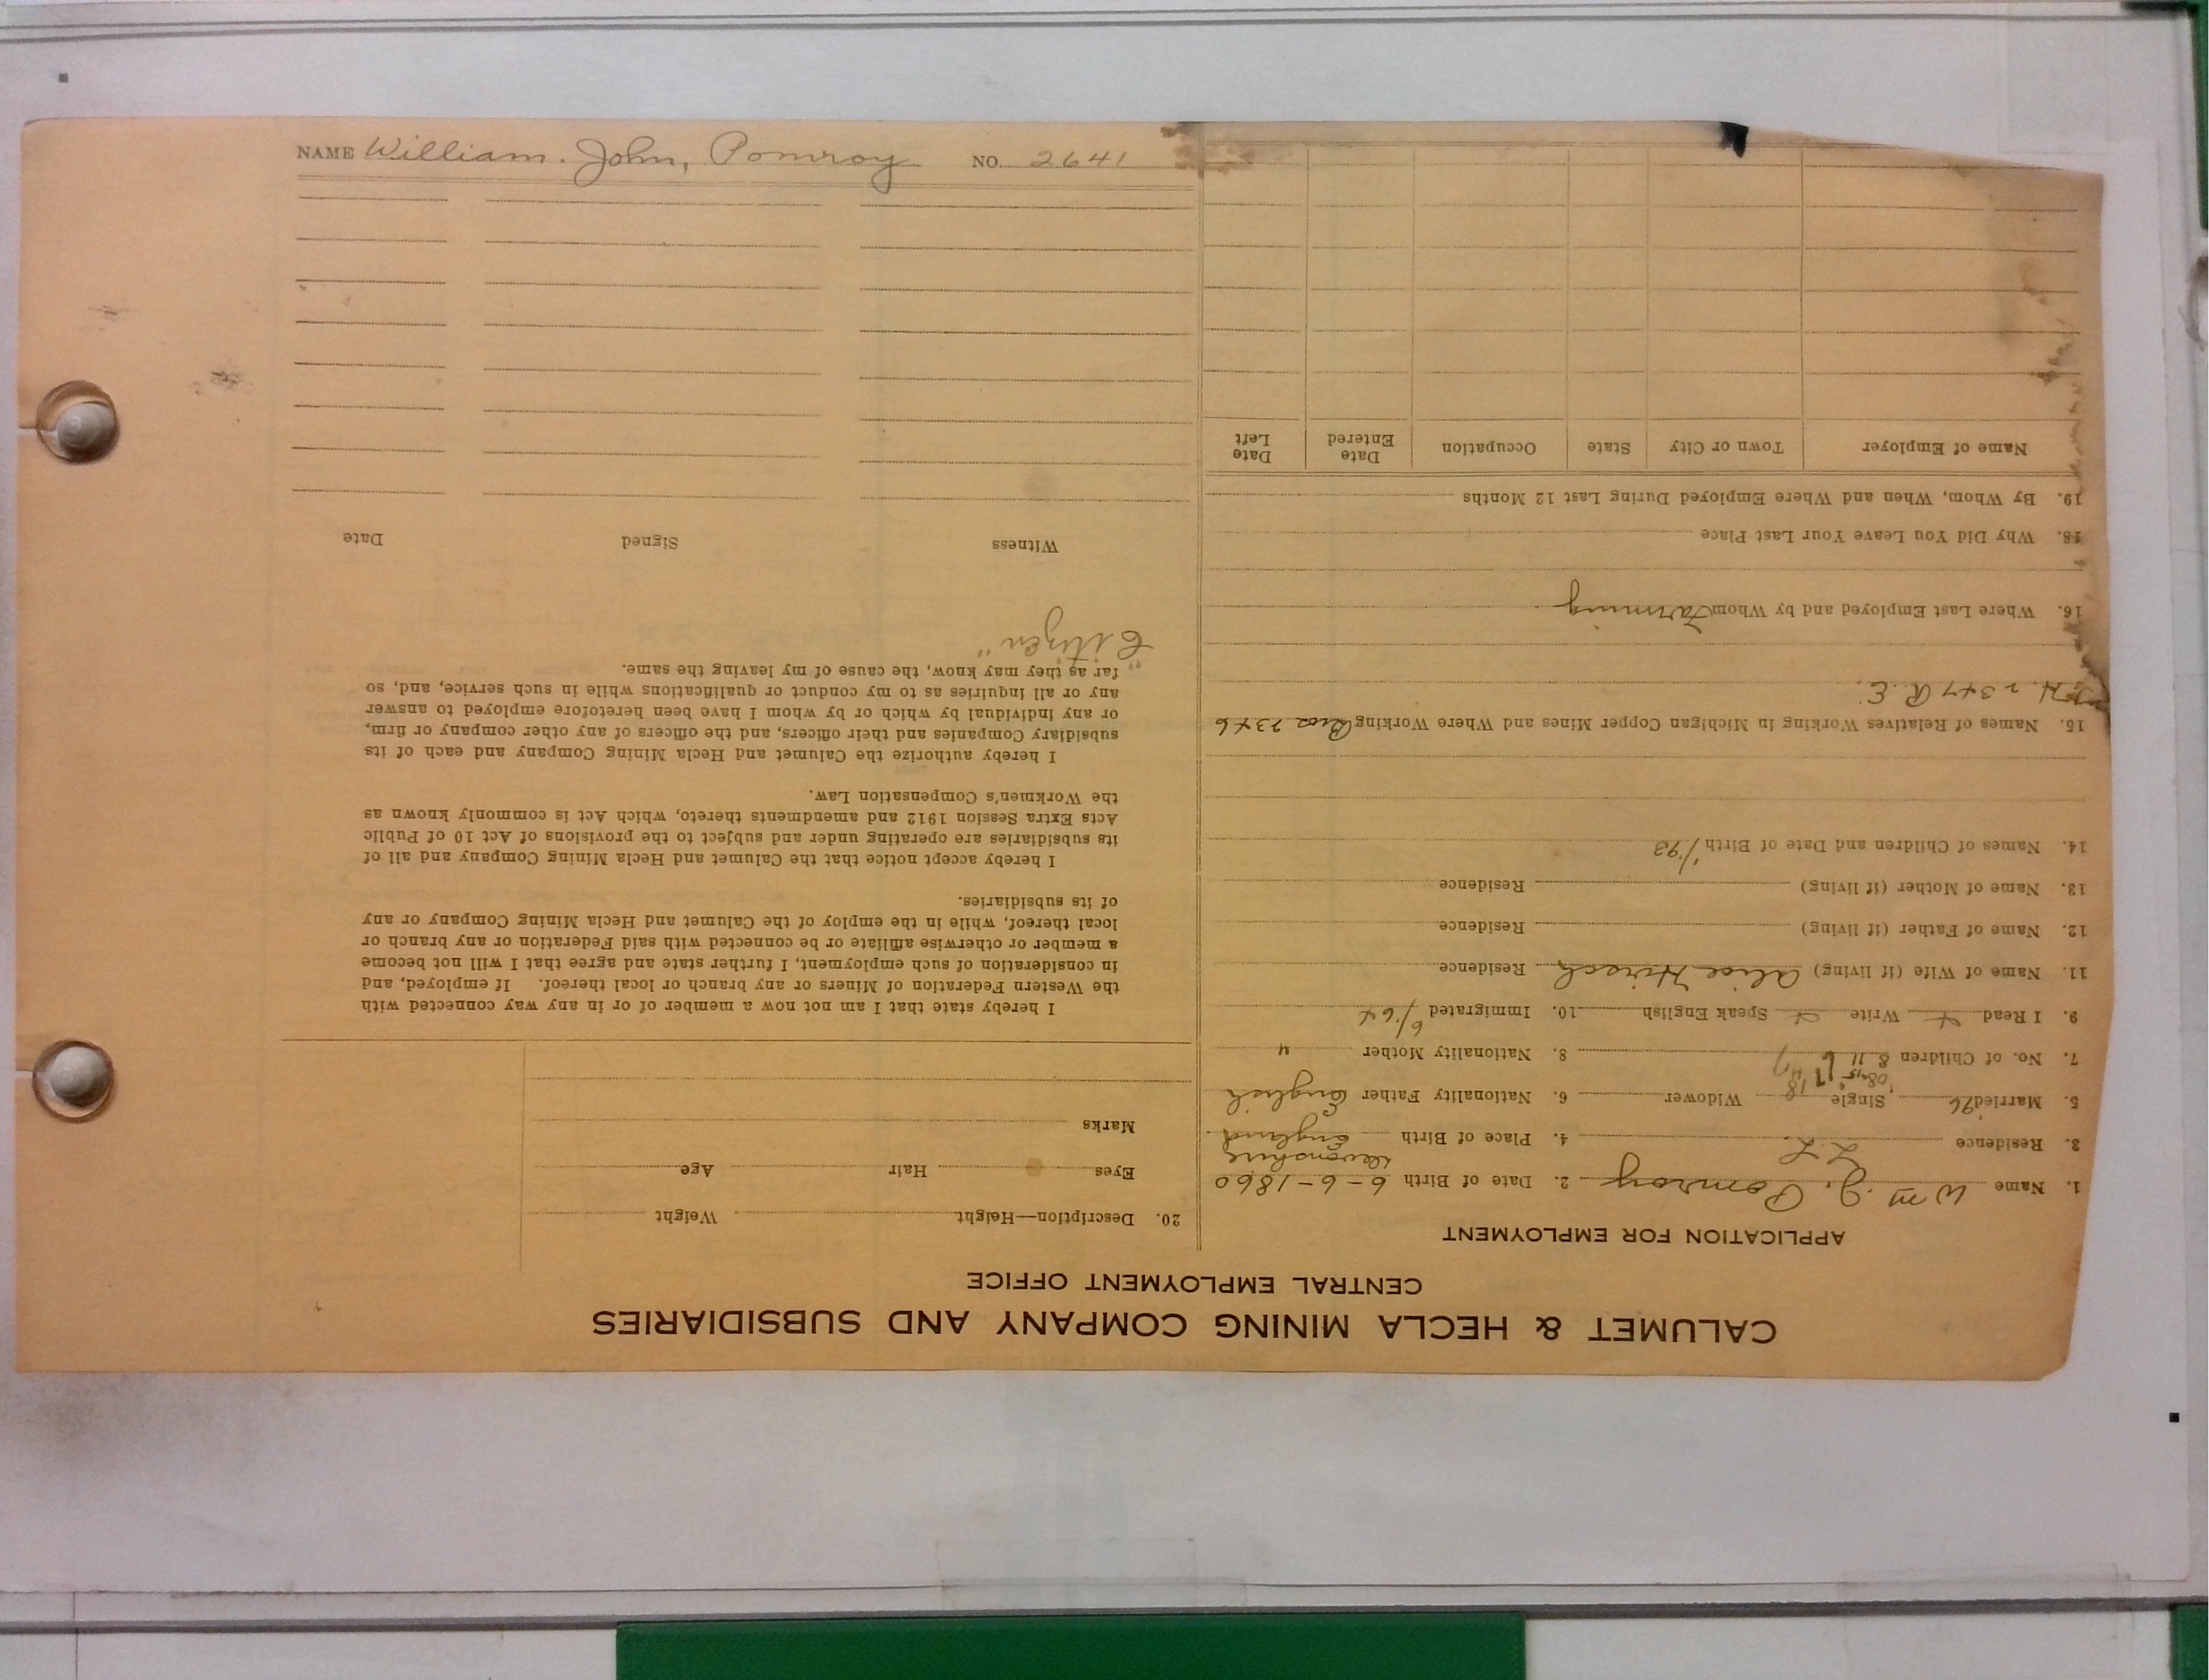 NAME William. John, Pomroy NO. 2641
CALUMET & HECLA MINING COMPANY AND SUBSIDIARIES
CENTRAL EMPLOYMENT OFFICE
APPLICATION FOR EMPLOYMENT
1. Name Wm J. Pomroy 2. Date of Birth 6-6-1860
Devonshire
3. Residence L L. 4. Place of Birth England
5. Married '96 Single Widower 6. Nationality Father English
7. No. of Children 8. Nationality Mother "
9. I Read Write Speak English 10. Immigrated
11. Name of Wife (if living) Alice Residence
12. Name of Father (if living) Residence
13. Name of Mother (if living) Residence
14. Names of Children and Date of Birth
15. Names of Relatives Working in Michigan Copper Mines and Where Working
R. E.
16. Where Last Employed and by Whom Farming
18. Why Did You Leave Your Last Place
19. By Whom, When and Where Employed During Last 12 Months
Name of Employer Town or City State Occupation Date Entered Date Left
20. Description—Height Weight
Eyes Hair Age
Marks
I hereby state that I am not now a member of or in any way connected with
the Western Federation of Miners or any branch or local thereof. If employed, and
in consideration of such employment, I further state and agree that I will not become
a member or otherwise affiliate or be connected with said Federation or any branch or
local thereof, while in the employ of the Calumet and Hecla Mining Company or any
of its subsidiaries.
I hereby accept notice that the Calumet and Hecla Mining Company and all of
its subsidiaries are operating under and subject to the provisions of Act 10 of Public
Acts Extra Session 1912 and amendments thereto, which Act is commonly known as
the Workmen's Compensation Law.
I hereby authorize the Calumet and Hecla Mining Company and each of its
subsidiary Companies and their officers, and the officers of any other company or firm,
or any individual by which or by whom I have been heretofore employed to answer
any or all inquiries as to my conduct or qualifications while in such service, and, so
far as they may know, the cause of my leaving the same.
"Citizen"
Witness Signed Date